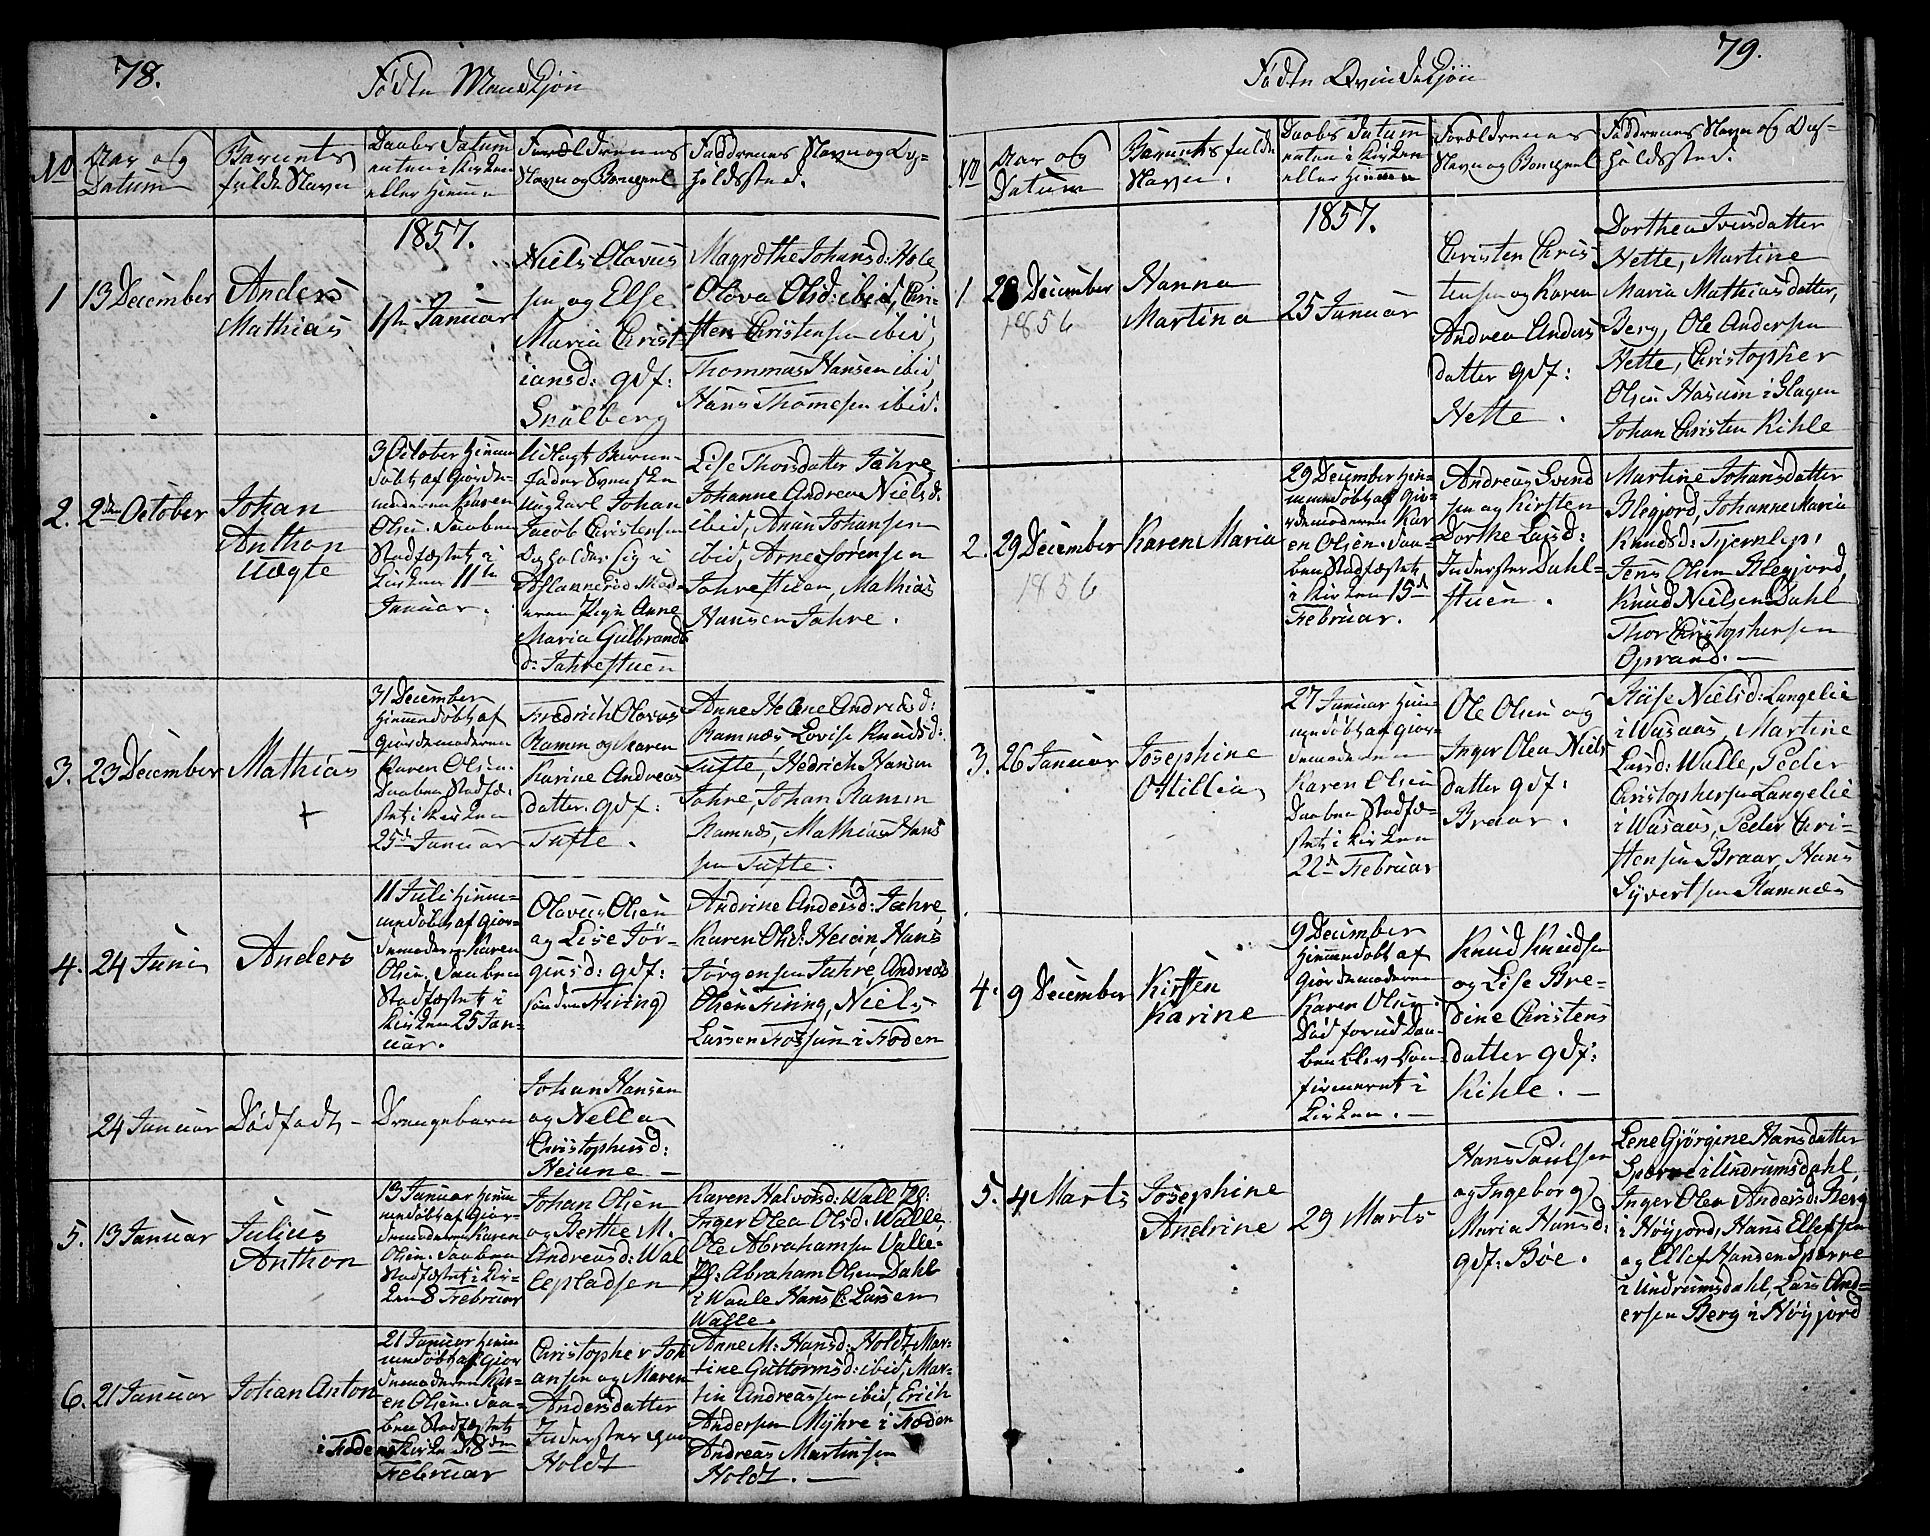 78.
Fødte Mandkjøn
No
Aar og
Datum
Barnets
fulde Navn
Daabs Datum
enten i Kirken
eller hjemme
Forældrenes
Navn og Bopæl
Faddrenes Navn og Op-
holdssted.
1857.
1
13 December
Anders
Mathias
1ste Januar
Niels Olavus
sen og Else
Maria Christ-
iansd: gdf:
Snalberg
Magrethe Johansd: Hole,
Olava Olsd: ibid, Chri-
sten Christensen ibid,
Thommas Hansen ibid,
Hans Thomesen ibid.
2.
2den October
Johan
Anthon
Uægte
3 October hjemme
døbt af Giorde-
moderen Karen
Olsen. Daaben
Stadfæstet i
Kirken 11te
Januar.
Udlagt Barne-
fader Svensken
ungkarl Johan
Jacob Christensen
Opholder sig i
Mod-
eren Pige Anne
Maria Gulbrands
d: Jahrestuen
Lise Thorsdatter Jahre,
Johanne Andrea Nielsd:
ibid, Anun Johansen
ibid, Arne Sørensen
Jahrestuen, Mathias
Hansen Jahre.
3.
23 December
Mathias
+
31 December
hjemmedøbt af
Giordemoderen
Karen Olsen.
Daaben Stadfæ-
stet i Kirken
25de Januar
Fredrich Olavus
Ramm og Maren
Karine Andreas
datter. gdf:
Tufte.
Anne Helene Andreasd:
Ramnæs Lovise Knudsd:
Tufte, Hedrich Hansen
Jahre, Johan Ramm
Ramnæs, Mathias Hans
sen Tufte.
4.
24 Juni
Anders
11 Juli hjem-
medøbt af Gior-
demoderen Karen
Olsen. Daaben
Stadfæstet i
Kirken 25 Jan-
uar.
Olavus Olsen
og Lise Jør-
gensd: gdf:
sønden Firing
Andrine Andersd: Jahre,
Karen Olsd: Heian, Hans
Jørgensen Jahre, Andreas
Olsen Firing, Niels
Larsen i Foden
24 Januar
Dødfødt -
Drengebarn
Johan Hansen
og Nella
Christophersd:
Heiane -
5.
13 Januar
Julius
Anthon
13 Januar hjem-
medøbt af Gior-
demoderen Karen
Olsen. Daaben
Stadfæstet i Kir-
ken 8 Februar
Johan Olsen
og Berthe M.
Andreasd: Wal
lepladsen
Karen Halvorsd: Wall Pl:
Inger Olea Olsd: Walle,
Ole Abrahamsen Valle-
Pl: Abraham Olsen Dahl
i Waale Hans C: Larsen
Walle.
6.
21 Januar
Johan Anton
21 Januar hjem
medøbt af Gior
demoderen Kar-
en Olsen. Daa-
ben Stadfæstet
i Fodens Kirke d 8den
Februar
Christopher Joh
ansen og Maren
Andersdatter
Inderster paa
Holdt
Anne M: Hansd: Holdt, Mar-
tine Guttormsd: ibid, Mar-
tin Andreassen ibid, Erich
Andersen Myhre i Foden
Andreas Martinsen
Holdt. -
79.
Fødte Qvindekjøn
No
Aar og
Datum
Barnets fulde
Navn.
Daabs Datum
enten i Kirken
eller hjemme
Forældrenes
Navn og Bopæl
Faddrenes Navn og Op-
holdssted.
1857.
1.
28 December
1856
Hanna
Martina
25 Januar
Christen Chris
tensen og Karen
Andrea Anders
datter gdf:
Nette.
Dorthea Iversdatter
Nette, Martine
Maria Mathiasdatter,
Berg, Ole Andersen
Nette, Christopher
Olsen Hasum i Slagen
Johan Christen Kihle
2.
29 December
1856
Karen Maria
29 December hje-
mmedøbt af Gio-
rdemoderen Kar
en Olsen. Daa-
ben Stadfæstet
i Kirken 15de
Februar.
Andreas Svend
sen og Kirsten
Dorthe Larsd:
Inderster Dahl-
stuen.
Martine Johansdatter
Blegjord, Johanne Maria
Knudsd:
Jens Olsen Blegjord,
Knud Nielsen Dahl
Thor Christophersen
Oprand. -
3.
26 Januar
Josephine
Ottillia
27 Januar hjem
medøbt af Gior-
demoderen
Karen Olsen
Daaben Stadfæ-
stet i Kirken
22de Februar
Ole Olsen og
Inger Olea Niels
datter gdf:
Braar.
Nielsd: Langelie
i Wasaas, Martine
Larsd: Walle, Peder
Christophersen Langelie
i Wasaas, Peder Chri-
stensen Braar, Hans
Syvertsen Ramnæs
4.
9 December
Kirsten
Karine
9 December
hjemmedøbt af
Giordemoderen
Karen Olsen.
Død forud Daa-
ben blev Con-
firmeret i
Kirken. -
Knud Knudsen
og Lise Bre-
dine Christens
datter gdf:
Kihle. -
5.
4 Marts
Josephine
Andrine
29 Marts
Hans Paulsen
og Ingeborg
Maria Hansd:
gdf: Bøe.
Lene Gjørgine Hansdatter
Sperre i Undrumsdahl,
Inger Olea Andersd: Berg
i Høyjord, Hans Ellefsen
og Ellef Hansen Sperre
i Undrumsdahl, Lars And-
ersen Berg i Høyjord